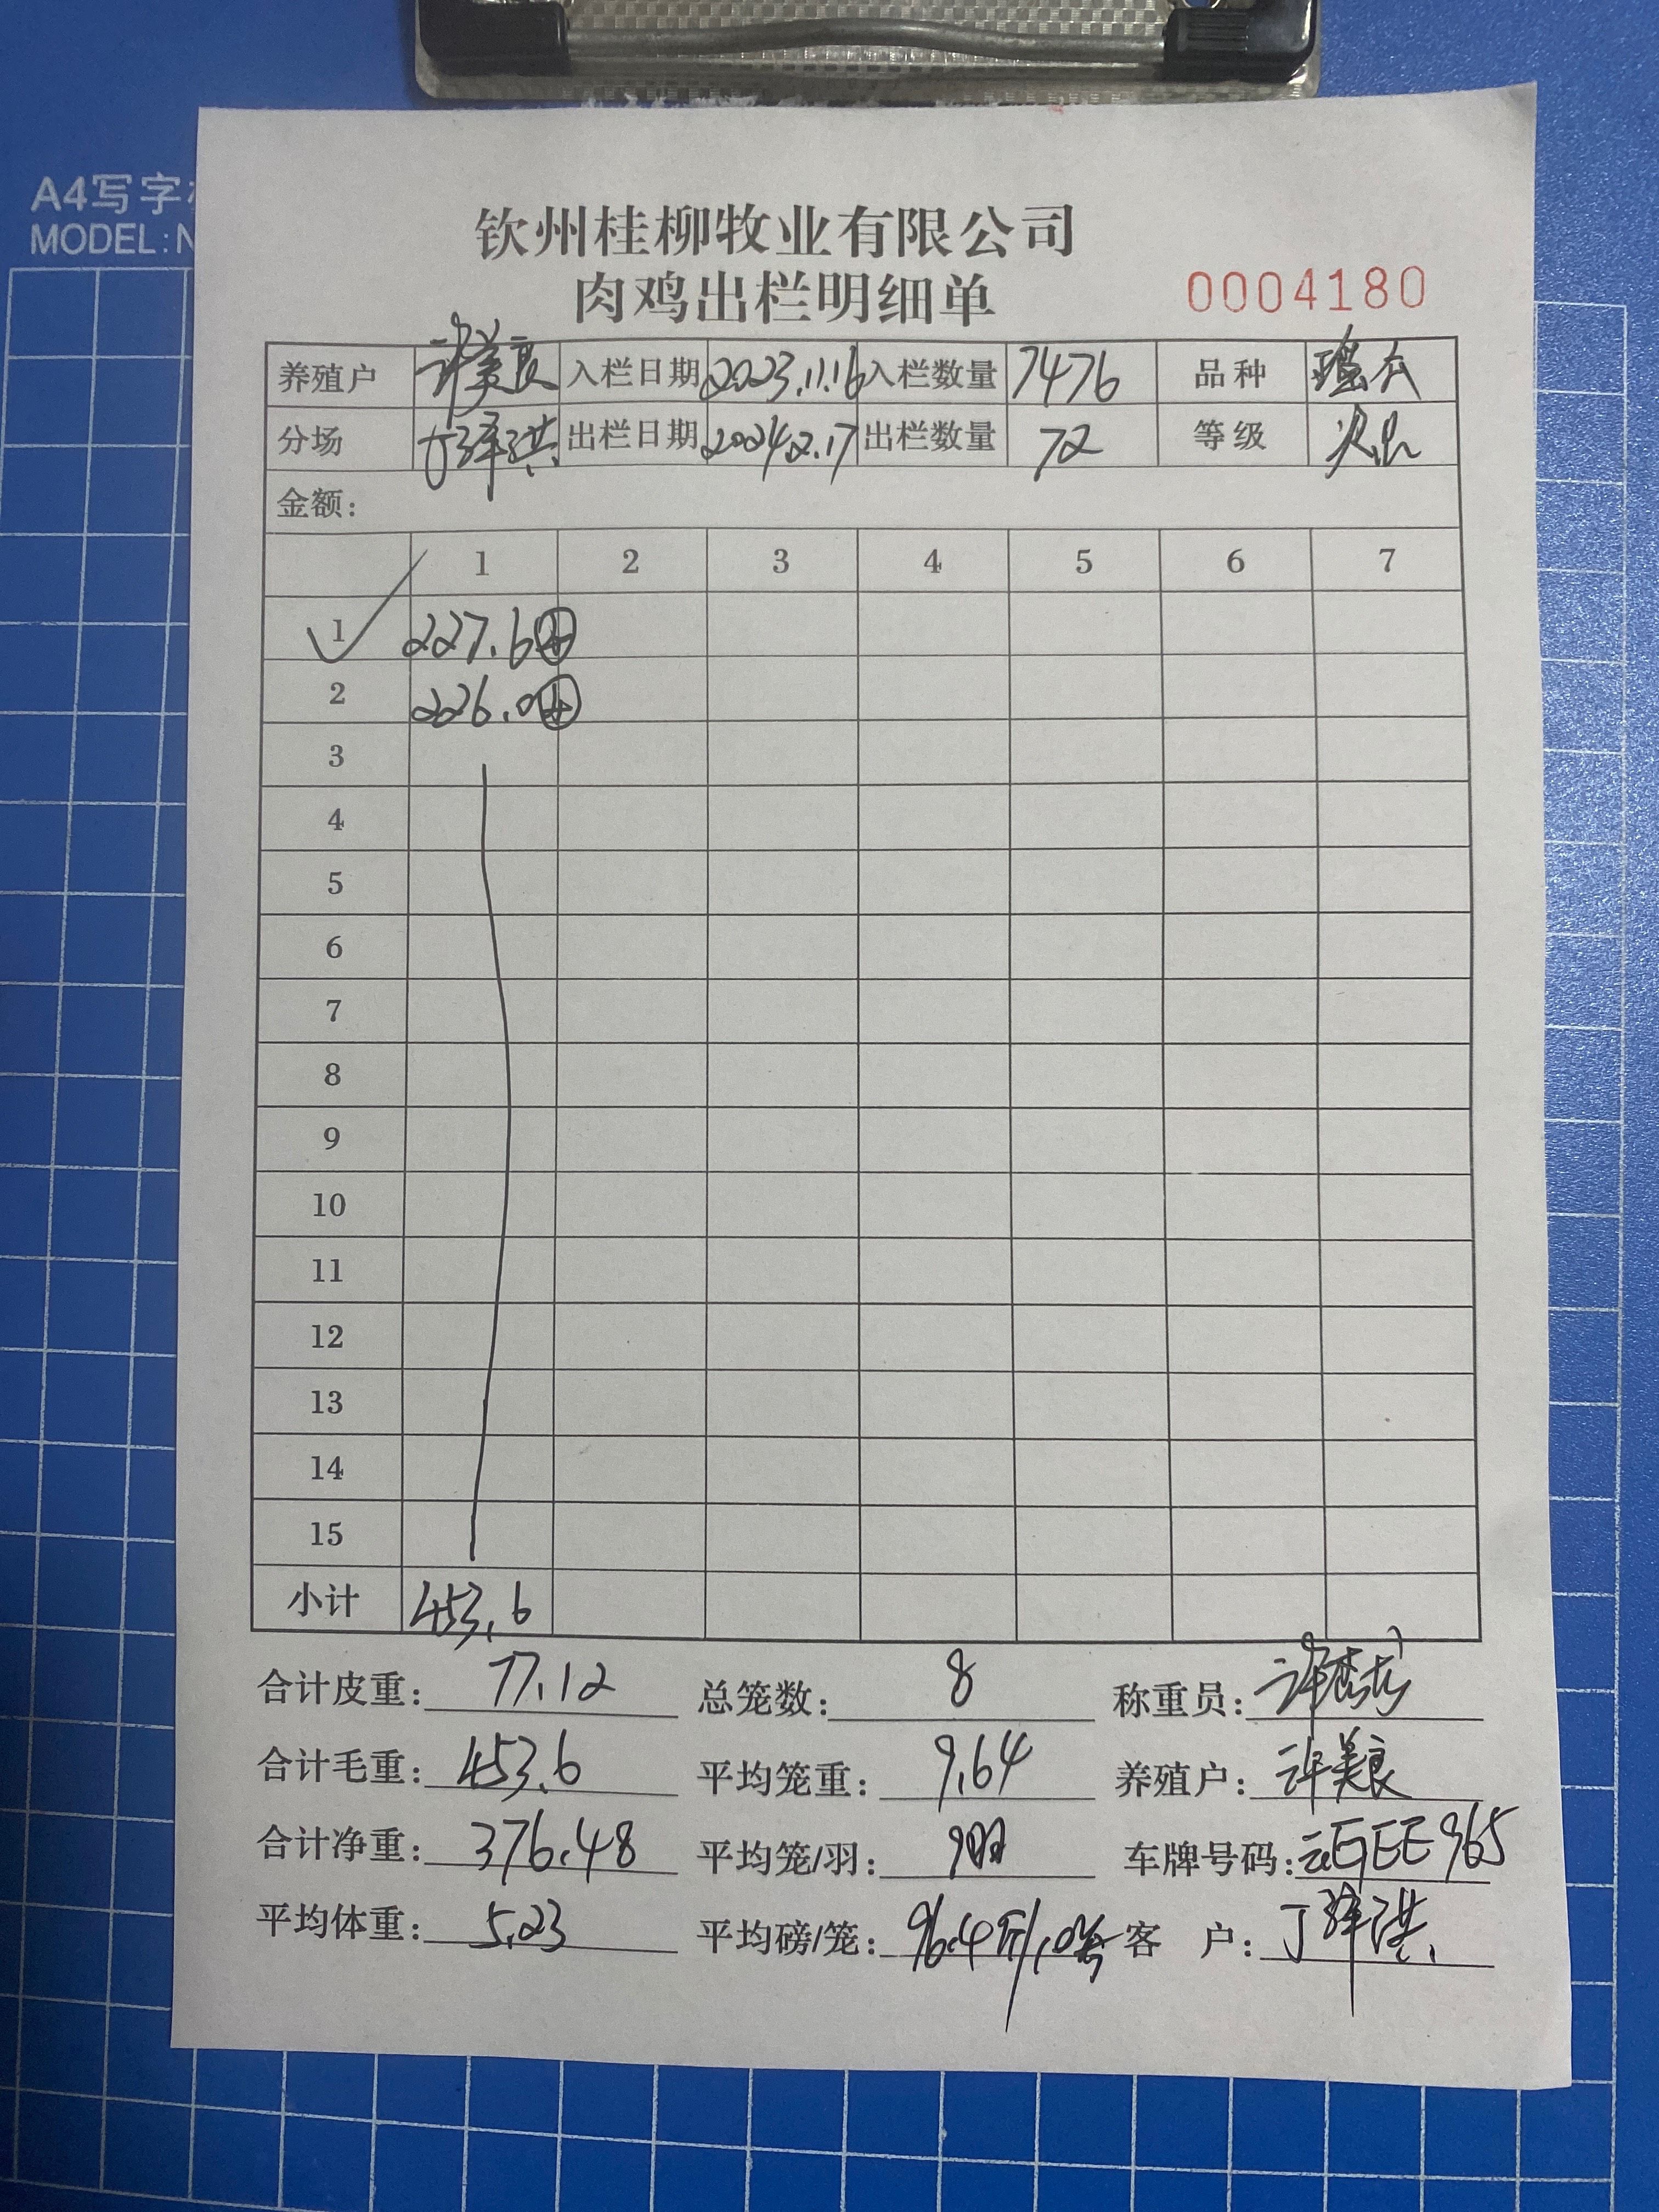 A4写字
MODEL:N
钦州桂柳牧业有限公司
肉鸡出栏明细单
0004180
养殖户 许美良 入栏日期 2023.11.16 入栏数量 7476 品种
分场 丁泽洪 出栏日期 2024.2.17 出栏数量 72 等级 次品
金额:
1 2 3 4 5 6 7
1 227.6 ④
2 226.0 ④
3
4
5
6
7
8
9
10
11
12
13
14
15
小计 453.6
合计皮重: 77.12 总笼数: 8 称重员:
合计毛重: 453.6 平均笼重: 9.64 养殖户: 许美良
合计净重: 376.48 平均笼/羽: 9羽 车牌号码: 云GEE965
平均体重: 5.23 平均磅/笼: 96.4斤/10笼 客 户: 丁泽洪